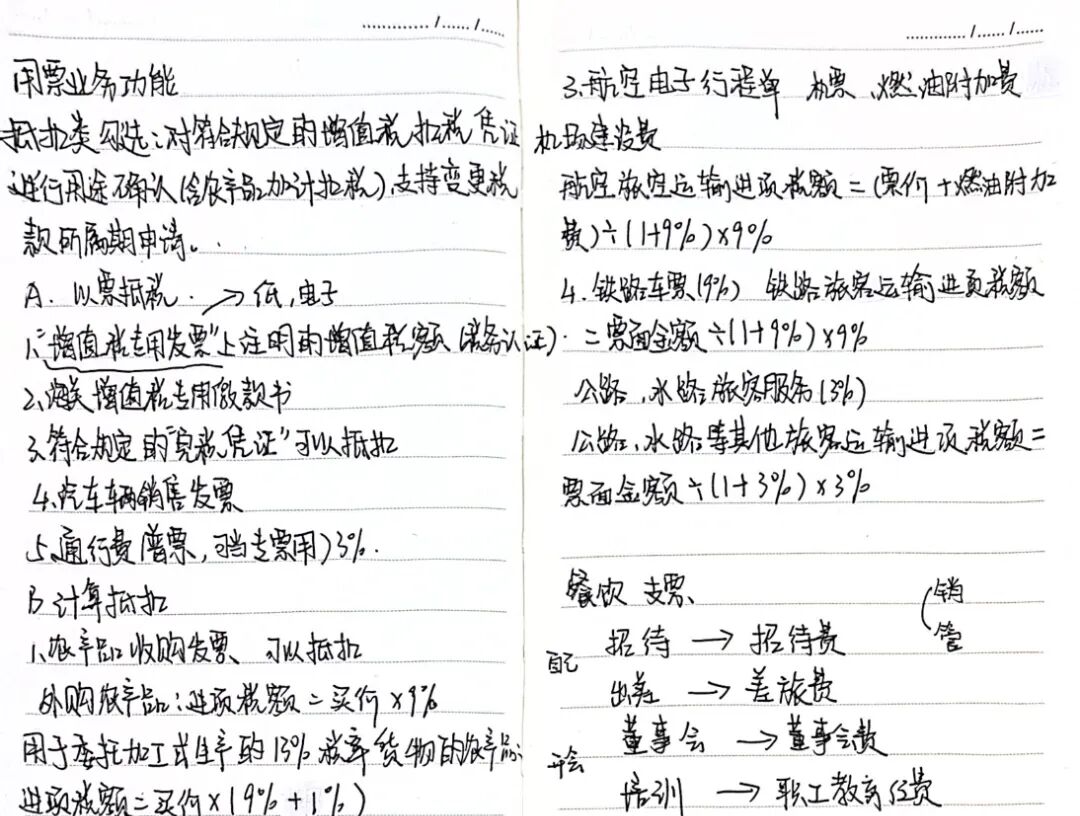 用票业务功能
抵扣类勾选：对符合规定的增值税扣税凭证
进行用途确认(含农产品加计扣税)，支持变更税
款所属期申请。
A. 以票抵税. → 纸,电子
1、“增值税专用发票”上注明的增值税额 (税务认证).
2、海关增值税专用缴款书
3、符合规定的“完税凭证”可以抵扣
4、汽车辆销售发票
5、通行费(普票，可当专票用)3%.
B 计算抵扣
1、农产品收购发票、可以抵扣
外购农产品：进项税额=买价×9%
用于委托加工或生产的13%税率货物的农产品：
进项税额=买价×(9%+1%)
............./....../......
3.航空电子行程单 机票、燃油附加费
机场建设费
航空旅空运输进项税额=(票价+燃油附加
费)÷(1+9%)×9%
4.铁路车票(9%) 铁路旅客运输进项税额
=票面金额÷(1+9%)×9%
公路、水路旅客服务(3%)
公路、水路等其他旅客运输进项税额=
票面金额÷(1+3%)×3%
餐饮 支票、 (销
管
招待 → 招待费
自己
出差 → 差旅费
董事会 → 董事会费
开会
培训 → 职工教育经费